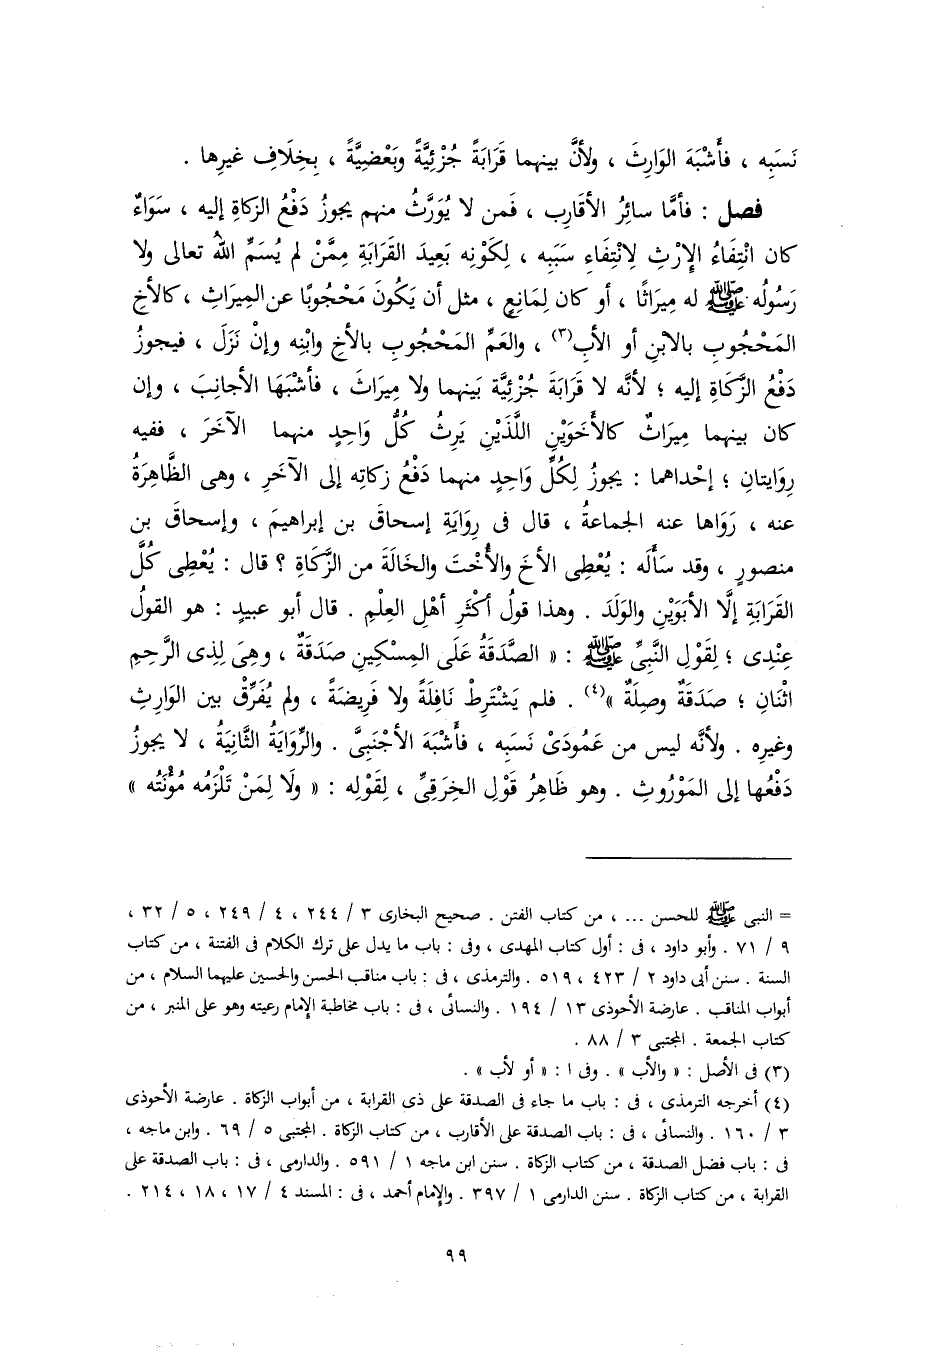 نَسَبِه ، فأَشْبَهَ الوَارِثَ ، ولأنَّ بينهما قَرَابَةً جُزْئِيَّةً وبَعْضِيَّةً ، بِخِلَافِ غيرِها .
فصل : فأمَّا سائِرُ الأقارِبِ ، فَمن لا يُوَرَّثُ منهم يجوزُ دَفْعُ الزكاةِ إليه ، سَوَاءٌ
كان انْتِفَاءُ الإِرْثِ لِانْتِفَاءِ سَبَبِه ، لِكَوْنِه بَعِيدَ القَرَابَةِ مِمَّنْ لم يُسَمِّ اللهُ تعالى ولا
رَسُولُه ﷺ له مِيرَاثًا ، أو كان لِمَانِعٍ ، مثل أن يَكُونَ مَحْجُوبًا عن المِيرَاثِ ، كالأخِ
المَحْجُوبِ بالابْنِ أو الأبِ(٣) ، والعَمِّ المَحْجُوبِ بالأخِ وابْنِه وإنْ نَزَلَ ، فيجوزُ
دَفْعُ الزَّكَاةِ إليه ؛ لأنَّه لا قَرَابَةَ جُزْئِيَّة بَينهما ولا مِيرَاثَ ، فأشْبَهَا الأجانِبَ ، وإن
كان بينهما مِيرَاثٌ كالأَخَوَيْنِ اللَّذَيْنِ يَرِثُ كُلُّ وَاحِدٍ منهما الآخَرَ ، ففيه
رِوَايتانِ ؛ إحْداهما : يجوزُ لِكُلِّ وَاحِدٍ منهما دَفْعُ زكاتِه إلى الآخَرِ ، وهى الظَّاهِرَةُ
عنه ، رَوَاها عنه الجماعةُ ، قال فى رِوَايَةِ إسحاقَ بن إبراهيمَ ، وإسحاقَ بن
منصورٍ ، وقد سَأَلَه : يُعْطِى الأخَ والأُخْتَ والخَالَةَ من الزَّكَاةِ ؟ قال : يُعْطِى كُلَّ
القَرَابَةِ إلَّا الأبَوَيْنِ والوَلَدَ . وهذا قولُ أكْثَرِ أهْلِ العِلْمِ . قال أبو عبيدٍ : هو القولُ
عِنْدِى ؛ لِقَوْلِ النَّبِىِّ ﷺ : « الصَّدَقَةُ عَلَى المِسْكِينِ صَدَقَةٌ ، وهِىَ لِذِى الرَّحِمِ
اثْنَانِ ؛ صَدَقَةٌ وصِلَةٌ »(٤) . فلم يَشْتَرِطْ نَافِلَةً ولا فَرِيضَةً ، ولم يُفَرِّقْ بين الوَارِثِ
وغيرِه . ولأنَّه ليس من عَمُودَىْ نَسَبِه ، فأَشْبَهَ الأجْنَبِىَّ . والرِّوَايَةُ الثَّانِيَةُ ، لا يجوزُ
دَفْعُها إلى المَوْرُوثِ . وهو ظَاهِرُ قَوْلِ الخِرَقِىِّ ، لِقَوْلِه : « ولَا لِمَنْ تَلْزَمُه مُؤْنَتُه »
= النبى ﷺ للحسن ... ، من كتاب الفتن . صحيح البخارى ٣ / ٢٤٤ ، ٤ / ٢٤٩ ، ٥ / ٣٢ ،
٩ / ٧١ . وأبو داود ، فى : أول كتاب المهدى ، وفى : باب ما يدل على ترك الكلام فى الفتنة ، من كتاب
السنة . سنن أبى داود ٢ / ٤٢٣ ، ٥١٩ . والترمذى ، فى : باب مناقب الحسن والحسين عليهما السلام ، من
أبواب المناقب . عارضة الأحوذى ١٣ / ١٩٤ . والنسائى ، فى : باب مخاطبة الإمام رعيته وهو على المنبر ، من
كتاب الجمعة . المجتبى ٣ / ٨٨ .
(٣) فى الأصل : « والأب » . وفى ا : « أو لأب » .
(٤) أخرجه الترمذى ، فى : باب ما جاء فى الصدقة على ذى القرابة ، من أبواب الزكاة . عارضة الأحوذى
٣ / ١٦٠ . والنسائى ، فى : باب الصدقة على الأقارب ، من كتاب الزكاة . المجتبى ٥ / ٦٩ . وابن ماجه ،
فى : باب فضل الصدقة ، من كتاب الزكاة . سنن ابن ماجه ١ / ٥٩١ . والدارمى ، فى : باب الصدقة على
القرابة ، من كتاب الزكاة . سنن الدارمى ١ / ٣٩٧ . والإمام أحمد ، فى : المسند ٤ / ١٧ ، ١٨ ، ٢١٤ .
٩٩